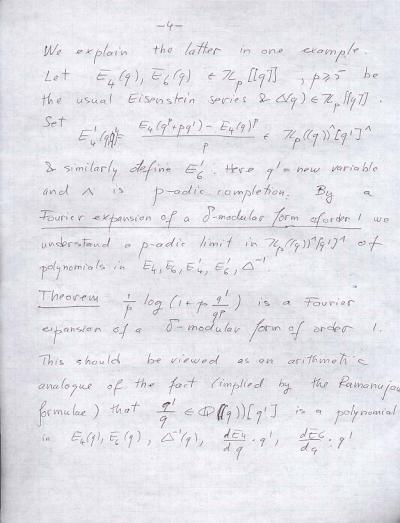 -4-
We explain the latter in one example.
Let E₄(q), E₆(q) ∈ ℤₚ[[q]], p≥5 be
the usual Eisenstein series & Δ(q) ∈ ℤₚ[[q]].
Set
E₄'(q) = (E₄(qᵖ+pq') − E₄(q)ᵖ)/p ∈ ℤₚ((q))^[q']^
& similarly define E₆'. Here q' = new variable
and ∧ is p-adic completion. By a
Fourier expansion of a δ-modular form of order 1 we
understand a p-adic limit in ℤₚ((q))^[q']^ of
polynomials in E₄, E₆, E₄', E₆', Δ⁻¹.
Theorem 1/p log (1+p q'/qᵖ) is a Fourier
expansion of a δ-modular form of order 1.
This should be viewed as an arithmetic
analogue of the fact (implied by the Ramanujan
formulae) that q'/q ∈ ℚ((q))[q'] is a polynomial
in E₄(q), E₆(q), Δ⁻¹(q), dE₄/dq · q', dE₆/dq · q'